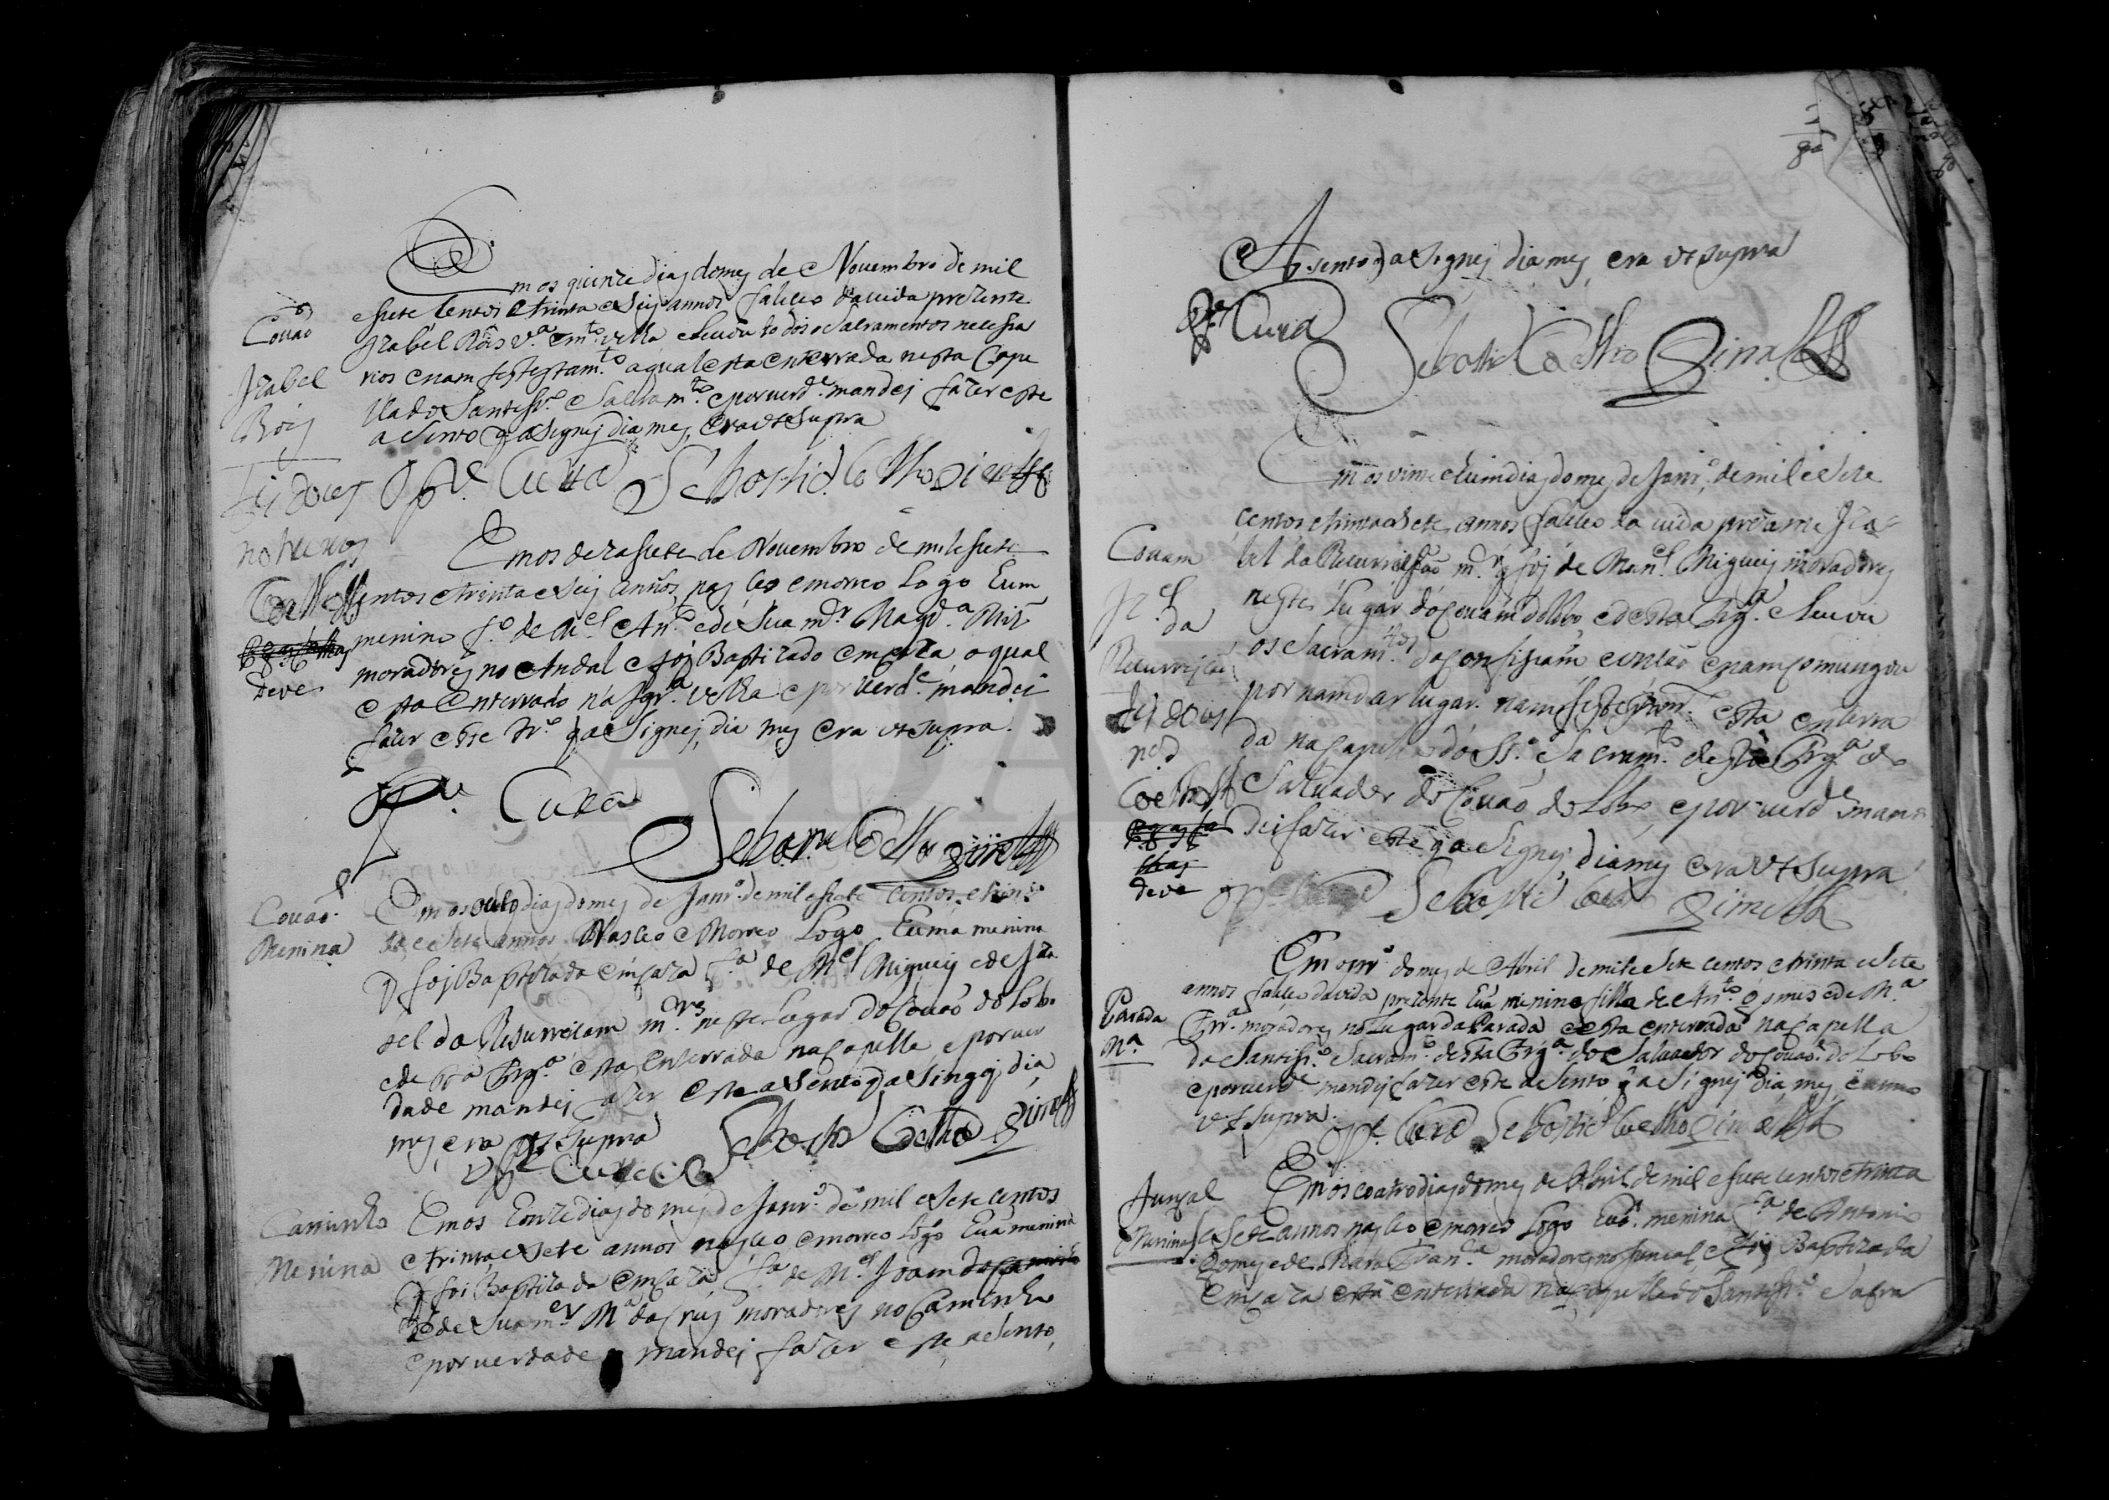 Em os quinze dias do mes de Novembro de mil
e sete centos e trinta e seis annos faleceo da vida prezente
Izabel Rois v.ª e m.to velha e Recebeu todos os Sacramentos necessa
rios e nam fes testam.to a qual esta enterrada nesta Cape
lla do Santiss.º Sacram.to e por verd.e mandei fazer este
asento q asignej dia mes era ut supra
Covaõ
Izabel
Rois
O P.e Cura Sebastiaõ Coelho Pim.tel
fes doies
noturnos
Coelho
deve
Em os dezasete de Novembro de mil e sete
centos e trinta e seis annos nasceo e morreo Logo hum
menino f.º de M.el An.to e de sua m.er Magd.ª
moradores no Andal e foi Baptizado em caza, o qual
esta enterrado na Igr.ª velha e por verd.e mandei
fazer este tr.º q asignej dia mes era ut supra.
O P.e Cura
Sebast.am Coelho Pim.tel
Covaõ.
Menina
Em os outo dias do mes de Janr.º de mil e sete centos e trin
ta e sete annos Nasceo e Morreo Logo huma menina
q foi Baptizada em caza f.ª de M.el Migueis e de Iza
bel da Resurreicam m.res neste Lugar do Covaõ do Lobo
e desta Frg.ª esta enterrada na Capella e por ver
dade mandei fazer este asento q asingej dia
mes era ut supra
O P.e Cura Sebastiaõ Coelho Pim.tel
Caminho
Menina
Em os honze dias do mes de Janr.º de mil e sete centos
e trinta e sete annos nasceo e morreo Logo huã menina
q foi Baptizada em caza f.ª de M.el Joam do Caminho
e de sua m.er M.ª da Crus moradores no Caminho
e por verdade mandei fazer este asento
Asento q asignej dia mes era ut supra
O P.e Cura
Sebastiaõ Coelho Pim.tel
Em os vinte e hum dias do mes de Janr.º de mil e sete
centos e trinta e sete annos faleceo da vida prezante Iza
bel da Resurreiçaõ m.er q foi de Man.el Migueis moradores
neste Lugar do Covam do Lobo e desta Frg.ª e Recebeu
os Sacram.tos da Confissam e untaõ e nam comungou
por nam dar lugar. nam fes testam.to esta enterra
da na capella do SS.º Sacram.to desta Frg.ª de
Salvador do Covaõ do Lobo e por verd.e man
dei fazer este q asignej dia mes era ut supra
Covam
Iz.el
da
Resurreicaõ
fes doies
Coelho
deve
O P.e Cura Sebastiaõ Coelho Pimentel
Em o pr.º do mes de Abril de mil e sete centos e trinta e sete
annos faleceo da vida prezente huã menina filha de An.to Gomes e de M.ª
Frr.ª moradores no Lugar da Parada e esta enterrada na Capella
do Santiss.º Sacram.to desta Frg.ª do Salvador do Covaõ do Lobo
e por verd.e mandej fazer este asento q asignej dia mes e anno
ut supra.
Parada
M.ª
O P.e Cura Sebastiaõ Coelho Pim.tel
Juncal
Menina
Em os coatro dias do mes de Abril de mil e sete centos e trinta
e sete annos nasceo e morreo Logo huã menina f.ª de Antonio
Gomes e de Maria Fran.ca moradores no Juncal e foi Baptizada
em caza esta enterrada na capella do Santiss.º Sacra